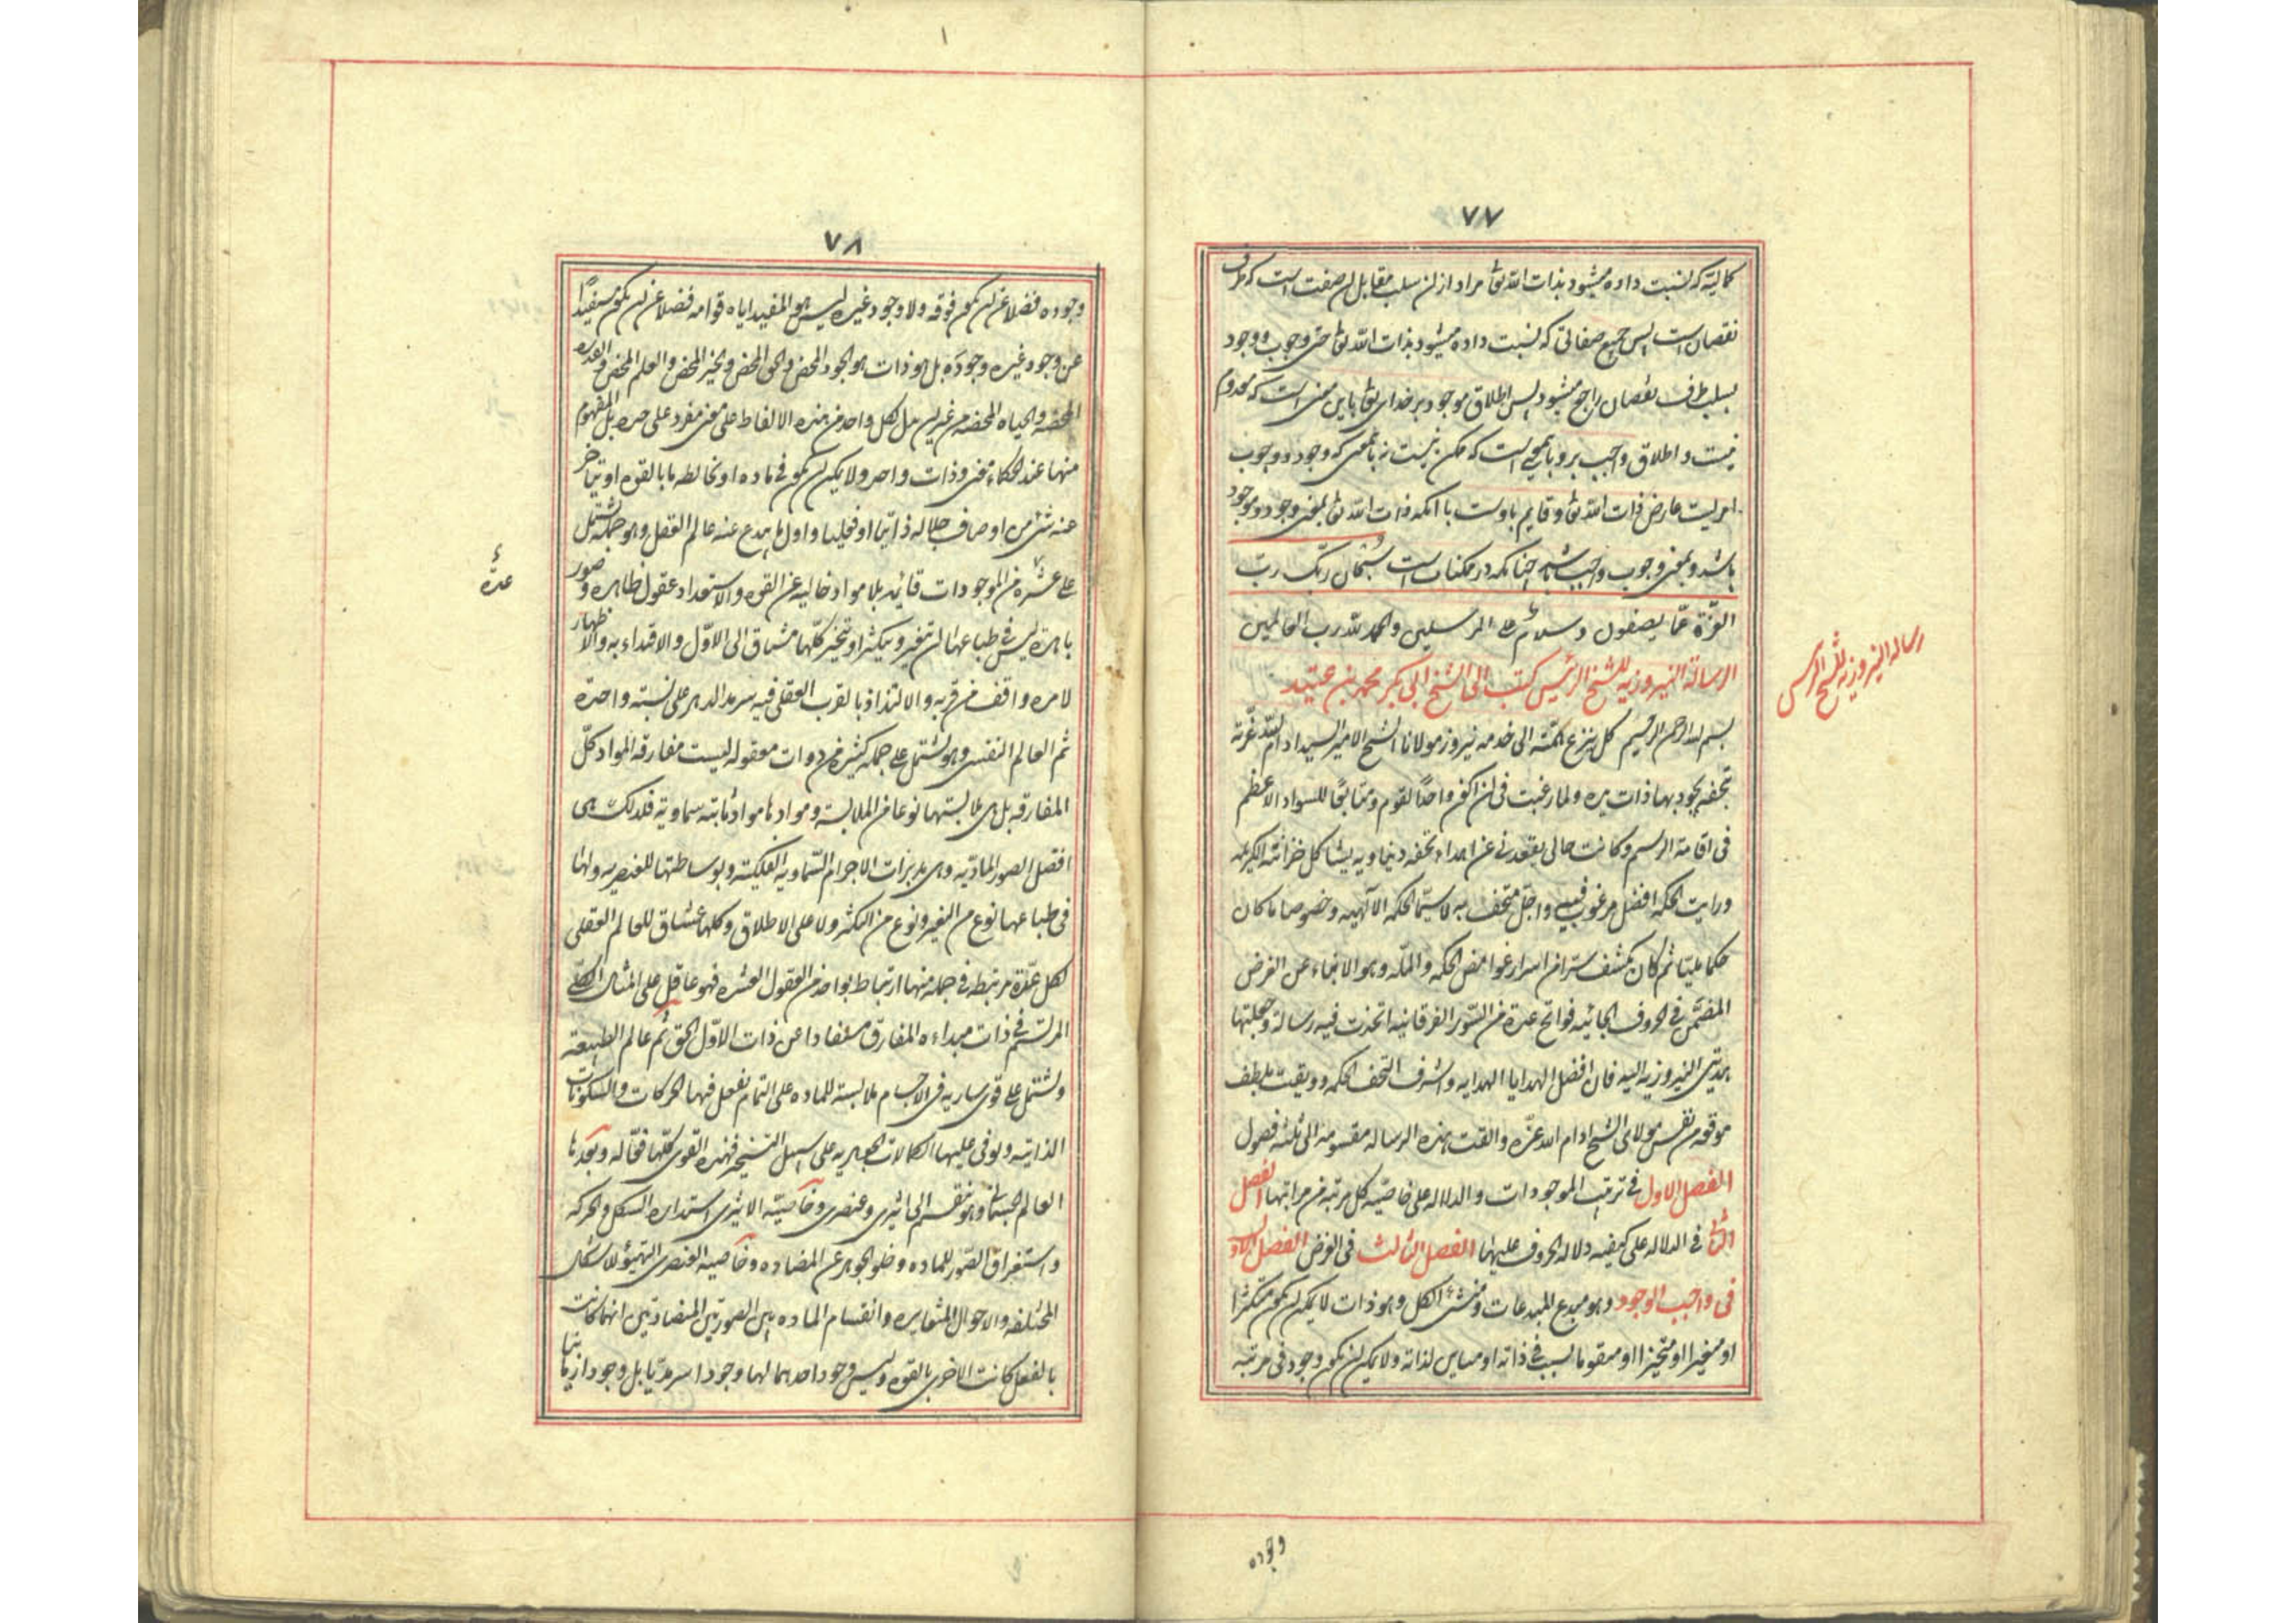 ۷۷
کمالیّه که نسبت داده میشود بذات الله تعالی مراد از آن سلب مقابل آن صفت است که طرف
نقصان است پس جمیع صفاتی که نسبت داده میشود بذات الله تعالی حتی وجوب و وجود
بسلب طرف نقصان راجع میشود پس اطلاق موجود بر خدای تعالی باین معنی است که معدوم
نیست و اطلاق واجب برو بآنمعنی است که ممکن نیست نه بآنمعنی که وجود و وجوب
امریست عارض ذات الله تعالی و قایم باوست یا آنکه ذات الله تعالی بمعنی وجود و موجود
باشد و بمعنی وجوب و واجب باشد چنانکه در ممکنات است سبحان ربّک ربّ
العزّة عمّا یصفون و سلام علی المرسلین والحمد لله رب العالمین
الرسالة النیروزیه للشیخ الرئیس کتب الی الشیخ ابی بکر محمد بن عبید
رساله النیروزیه للشیخ الرئیس
بسم الله الرحمن الرحیم کل ینزع همّته الی خدمه نیروز مولانا الشیخ الامیر السید ادام الله عزّته
بتحفه یجود بها ذات یده ولما رغبت فی ان اکون واحدًا لقوم و متابعًا للسواد الاعظم
فی اقامة الرسم وکانت حالی یقعدنی عن اهداء تحفه دنیاویه یشاکل خزانته الکریمه
ورایت الحکمه افضل مرغوب فیه واجلّ متحف به لاسیّما الحکمه الآلهیه وخصوصا ما کان
حکما ملیّا ثم کان یکشف سترا من اسرار غوامض الحکمه والملّه وهو الانباء عن الغرض
المضمّن فی الحروف الهجائیه فواتح عدة من السّور الفرقانیه اتخذت فیه رساله وجعلتها
هدیتی النیروزیه الیه فان افضل الهدایا الهدایه واشرف التحف الحکمه ووثقت بلطف
موقعه من نفس مولائی الشیخ ادام الله عزّه والفت هذه الرساله مقسومه الی ثلثه فصول
الفصل الاول فی ترتیب الموجودات والدلاله علی خاصّیه کل مرتبه من مراتبها الفصل
الثانی فی الدلاله علی کیفیه دلاله الحروف علیها الفصل الثالث فی الغرض الفصل الاول
فی واجب الوجود وهو مبدع المبدعات ومنشئ الکل وهو ذات لا یمکن ان یکون متکثرا
او متغیرا او متحیزا او متقوما بسبب فی ذاته او مباین لذاته ولا یمکن ان یکون وجود فی مرتبه
وجوده
۷۸
وجوده فضلا عن ان یکون فوقه ولا وجود غیره لیس هو المفید ایاه قوامه فضلا عن ان یکون مستفیدًا
عن وجود غیره وجوده بل هو ذات هو الوجود المحض والحق المحض والخیر المحض والعلم المحض والقدره
المحضه والحیاه المحضه من غیر ان یدل کل واحد من هذه الالفاظ علی معنی مفرد علی حده بل المفهوم
منها عند الحکماء معنی وذات واحد ولا یمکن ان یکون فی ماده او تخالطه ما بالقوه او یتاخر
عنه شئ من اوصاف جلاله ذاتیا او فعلیا واول ما یبدع عنه عالم العقل وهو جمله تشتمل
علی عدّة من الموجودات قائمه بلا مواد خالیه عن القوه والاستعداد عقول ظاهره وصور
باهره لیس فی طباعها ان تتغیر ویتکثر او تتحیز کلّها مشتاق الی الاوّل والاقتداء به والاظهار
عدّة
لامره واقف من قربه والالتذاذ بالقرب العقلی فیه سرمد الدهر علی نسبته واحدة
ثم العالم النفسی وهو یشتمل علی جمله کثیره من ذوات معقوله لیست مفارقه المواد کلّ
المفارقه بل هی ملابستها نوعا من الملابسه وموادها مواد ثابته سماویه فلذلک هی
افضل الصور المادّیه وهی مدبرات الاجرام السّماویه الفلکیّه وبوساطتها للعنصریه ولها
فی طباعها نوع من التغیر ونوع من التکثر ولا علی الاطلاق وکلها عشّاق للعالم العقلی
لکل عدّة مرتبطه فی جمله منها ارتباط بواحد من العقول العشره فهو عاقل علی المثال الکلّی
المرتسم فی ذات مبداءه المفارق مستفادا عن ذات الاوّل الحق ثم عالم الطبیعه
ویشتمل علی قوی ساریه فی الاجسام ملابسه للماده علی التمام تفعل فیها الحرکات والسکونات
الذاتیه وتوفی علیها الکمالات الجوهریه علی سبیل التسخیر فهذه القوی کلّها فعّاله وبعدها
العالم الجسمانی وهو ینقسم الی اثیری وعنصری وخاصیّه الاثیری استداره الشکل والحرکه
واستغراق الصّور للماده وخلو الجوهر عن المضاده وخاصیه العنصری التهیؤ للاشکال
المختلفه والاحوال المتغایره وانقسام الماده بین الصورتین المتضادتین انهما کانت
بالفعل کانت الاخری بالقوه ولیس وجود احدهما لها وجودا سرمدیّا بل وجودا زمانیا